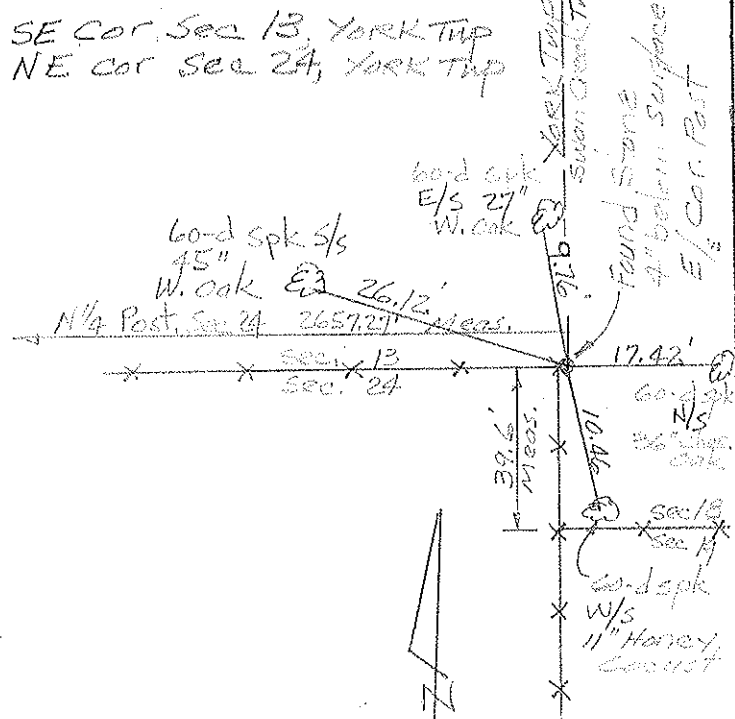 SE Cor. Sec 13, York Twp
NE Cor Sec 24, York Twp
York Twp
Swan Creek
Found Stone
4" below surface
E/ Cor. Post
60-d spk
E/S 27"
W. oak
9.76'
60-d spk S/S
45"
W. oak
26.12'
N 1/4 Post, Sec 24 2657.27' Meas.
Sec. 13
Sec. 24
17.42'
60-d spk
N/S
36"
oak
39.6'
Meas.
10.46
Sec 18
Sec 19
60-d spk
W/S
11" Honey
Locust
N